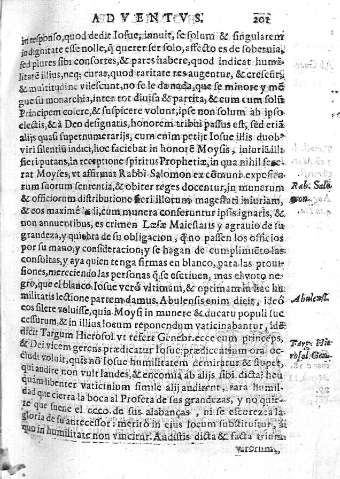 ADVENTVS. 201
in responso, quod dedit Iosue, innuit, se solum & singularem
in dignitate esse nolle, q̃ querer ser solo, affecto es de soberuia,
sed plures sibi consortes, & pares habere, quod indicat humi-
litatẽ illius, neq; curas, quod raritate res augentur, & crescũt,
& multitudine vilescunt, no se le da nada, que se minore y mẽ
gue su monarchia, inter tot diuisa & partita, & cum cum solũ
Principem colere, & suspicere volunt, ipse non solum ab ipso
electis, & à Deo designatis, honorem tribui passus est, sed etiã
alijs quasi supernumerarijs, cum enim petijt Iosue illis duob
viri silentiũ indici, hoc faciebat in honorẽ Moysis, iniuriã illi
fieri putans, in receptione spiritus Prophetiæ, in qua nihil fece-
rat Moyses, vt affirmat Rabbi Salomon ex cõmuni exposito-
rum suorum sententia, & obiter reges docentur, in munerum
& officiorum distributione fieri illorum magestati iniuriam,
& eos maximè lædi, cum munera conferuntur ipsis ignaris, &
non annuentibus, es crimen Læsæ Maiestatis y agrauio de su
grandeza, y quiebra de su obligacion, q̃ no passen los officios
por su mano, y consideracion; y se hagan de cumplimiẽto las
consultas, y aya quien tenga firmas en blanco, para las proui-
siones, mereciendo las personas q̃ se escriuen, mas el voto ne-
gro, que el blanco. Iosue verò vltimam, & optimam in hac hu
militatis lectione partem damus. Abulensis enim dicit, ideò
eos silere voluisse, quia Moysi in munere & ducatu populi suc
cessurum, & in illius locum reponendum vaticinabantur, ide
dicit Targum Hierosol vt refert Genebr. ecce cum princeps,
& Dei vicem gerens prædicatur Iosue, prædicantium ora oc-
cludi voluit, quis nõ Iosue humilitatem emiratur & stupet,
qui audire non vult laudes, & encomia ab alijs sibi dicta: heu
quam libenter vaticinium simile alij audirent, rara humil-
dad que cierra la boca al Profeta de sus grandezas, y no quie-
re que suene el ecco de sus alabanças, ni se escurezca la
gloria de su antecessor: meritò in eius locum substituitur, si
quo in humilitate non vincitur. Auditis dicta & facta trium
verorum,
Rab. Salo
mon.
Abulens.
Targ. Hie
rosol Gen.